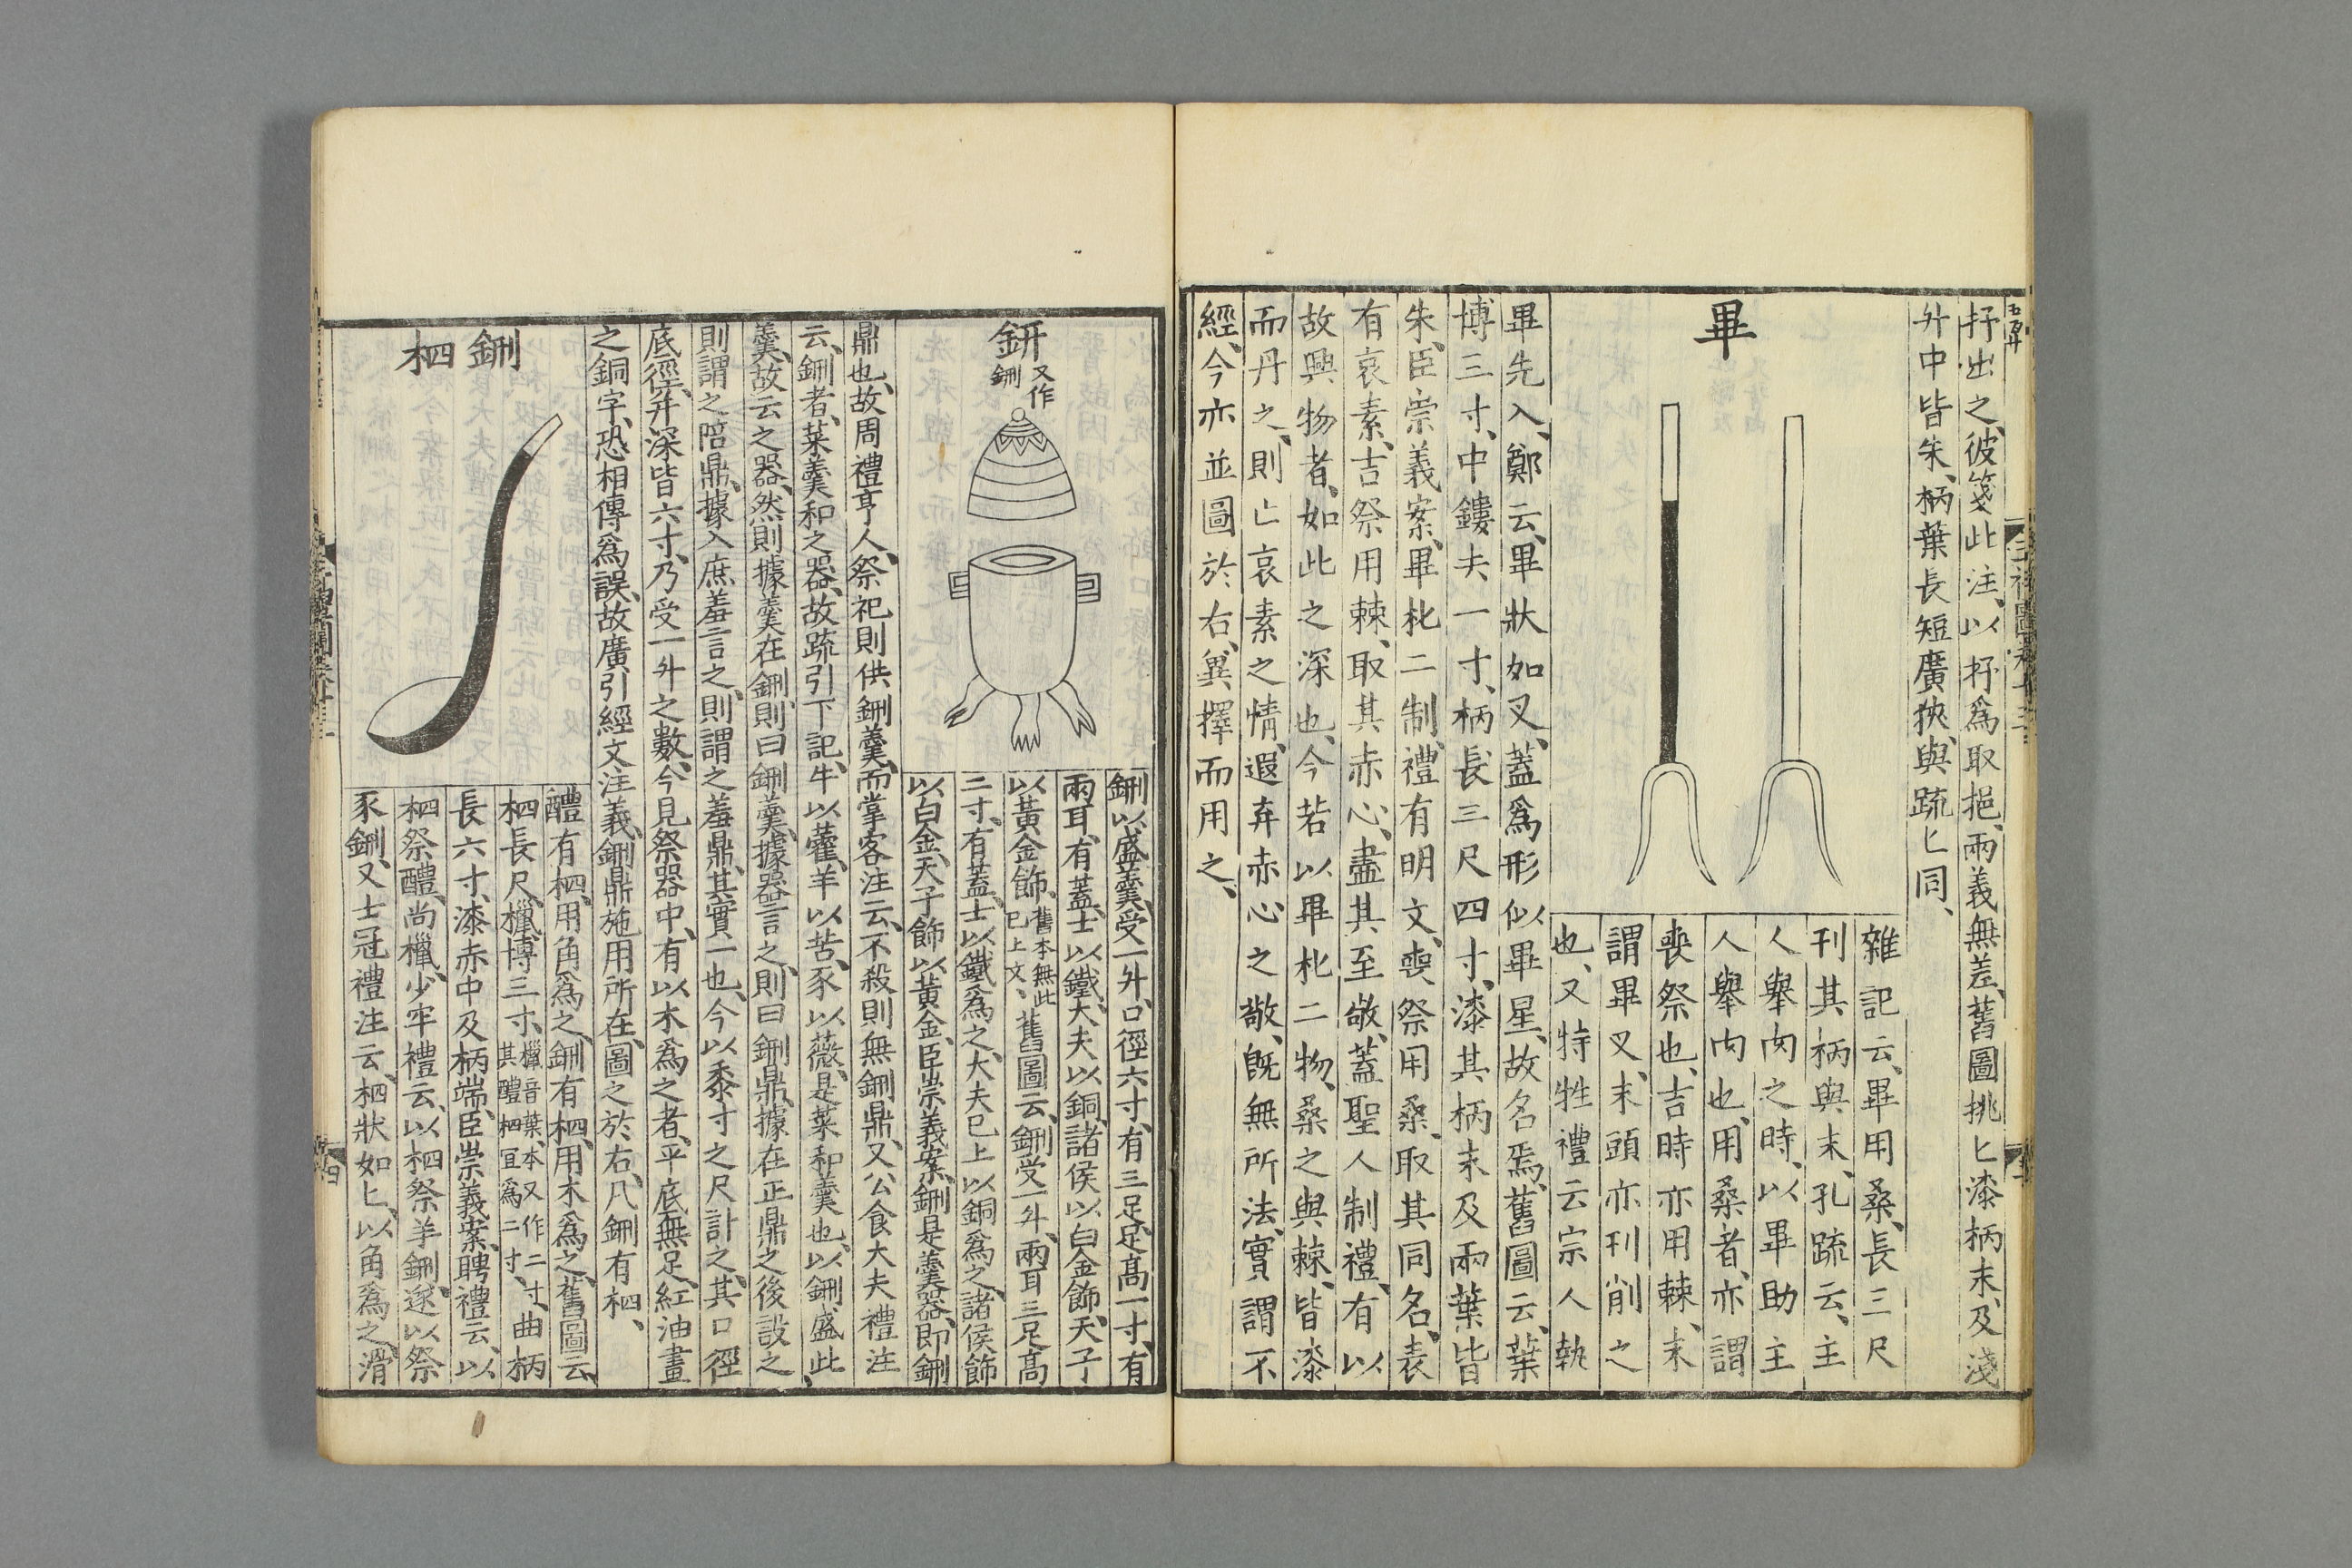 抒出之、彼箋此注、以抒爲取挹、兩義無差、舊圖挑匕漆柄末、及淺
升中皆朱、柄葉長短廣狹、與疏匕同、
畢
雜記云、畢用桑、長三尺
刊其柄與末、孔疏云、主
人舉肉之時、以畢助主
人舉肉也、用桑者、亦謂
喪祭也、吉時亦用棘、末
謂畢叉、末頭亦刊削之
也、又特牲禮云宗人執
畢先入、鄭云、畢狀如叉、蓋爲形似畢星、故名焉、舊圖云、葉
博三寸、中鏤去一寸、柄長三尺四寸、漆其柄末及兩葉皆
朱、臣崇義案、畢朼二制、禮有明文、喪祭用桑、取其同名、表
有哀素、吉祭用棘、取其赤心、盡其至敬、蓋聖人制禮、有以
故興物者、如此之深也、今若以畢朼二物、桑之與棘、皆漆
而丹之、則亡哀素之情、遐弃赤心之敬、旣無所法、實謂不
經、今亦並圖於右、冀擇而用之、
鈃又作鉶
鉶以盛羹、受一升、口徑六寸、有三足、足高一寸、有
兩耳、有蓋、士以鐵、大夫以銅、諸侯以白金飾、天子
以黃金飾、舊本無此已上文、舊圖云、鉶受一升、兩耳三足高
二寸、有蓋、士以鐵爲之、大夫已上以銅爲之、諸侯飾
以白金、天子飾以黃金、臣崇義案、鉶是羹器、即鉶
鼎也、故周禮亨人、祭祀則供鉶羹、而掌客注云、不殺則無鉶鼎、又公食大夫禮注
云、鉶者、菜羹和之器、故疏引下記、牛以藿、羊以苦、豕以薇、是菜和羹也、以鉶盛此
羹、故云之器、然則據羹在鉶、則曰鉶羹、據器言之、則曰鉶鼎、據在正鼎之後設之
則謂之陪鼎、據入庶羞言之、則謂之羞鼎、其實一也、今以黍寸之尺計之、其口徑
底徑、并深皆六寸、乃受一升之數、今見祭器中、有以木爲之者、平底無足、紅油畫
之銅字、恐相傳爲誤、故廣引經文注義、鉶鼎施用所在、圖之於右、凡鉶有柶、
鉶柶
醴有柶、用角爲之、鉶有柶、用木爲之、舊圖云、
柶長尺、櫼博三寸、櫼音葉、本又作二寸、其醴柶宜爲二寸、曲柄
長六寸、漆赤中及柄端、臣崇義案、聘禮云、以
柶祭醴、尚櫼、少牢禮云、以柶祭羊鉶、遂以祭
豕鉶、又士冠禮注云、柶狀如匕、以角爲之、滑